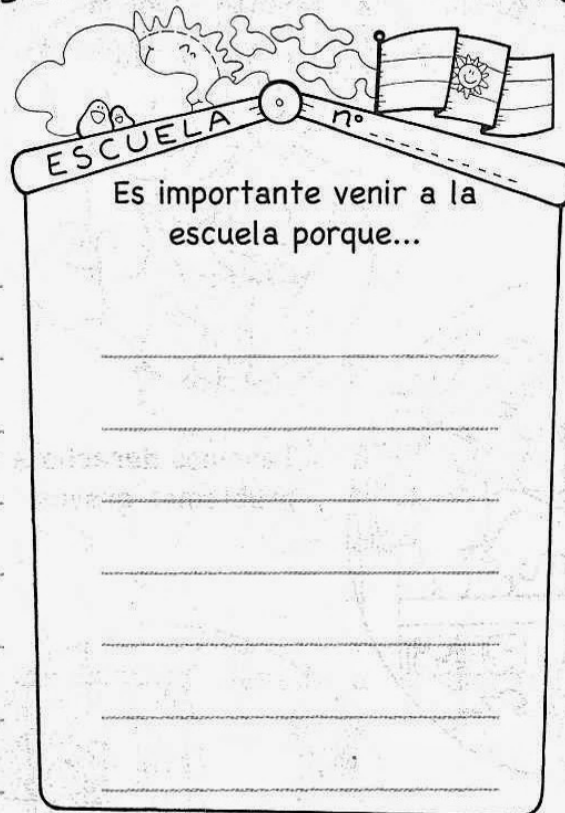 ESCUELA nº
Es importante venir a la
escuela porque...